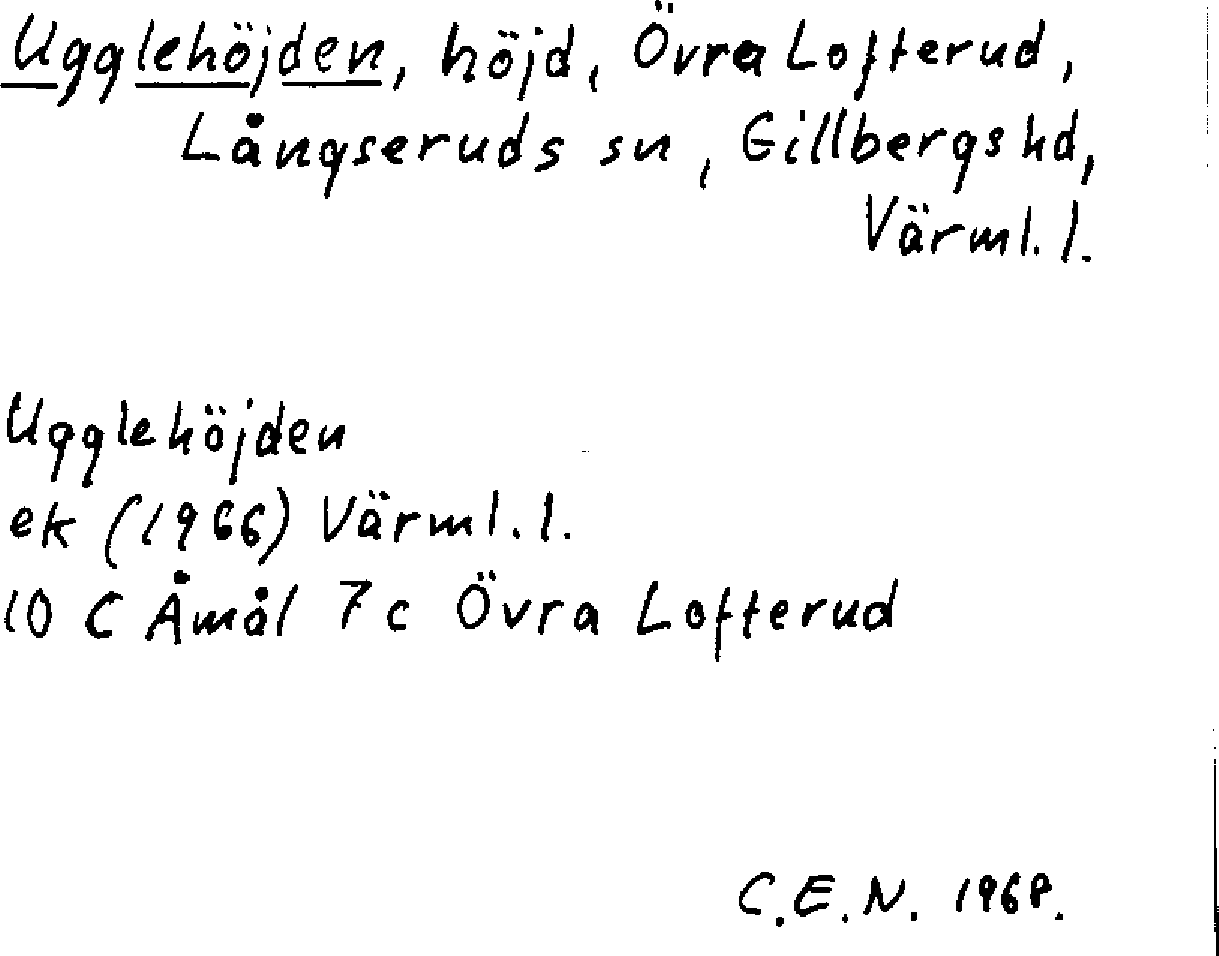 Ugglehöjden, höjd, Övra Lofterud,
Långseruds sn, Gillbergs hd,
Värml. l.
Ugglehöjden
ek (1966) Värml. l.
10 C Åmål 7 c Övra Lofterud
C.E.N. 1968.